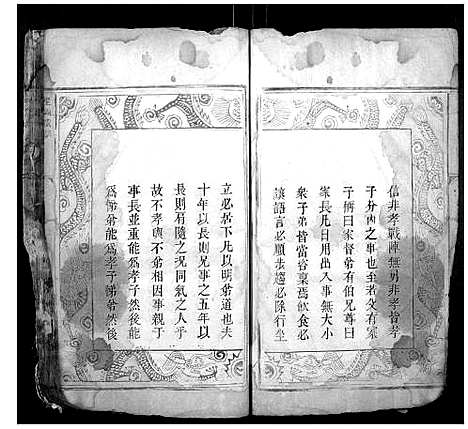 信非孝戰陣無勇非孝皆孝
子分內之事也至若父有家
子稱曰家督弟有伯兄尊曰
家長凡日用出入事無大小
眾子弟皆當咨稟焉飲食必
讓語言必順步趨必徐行坐
立必居下凡以明弟道也夫
十年以長則兄事之五年以
長則肩隨之況同氣之人乎
故不孝與不弟相因事親于
事長並重能為孝子然後能
為悌弟能為孝子悌弟然後